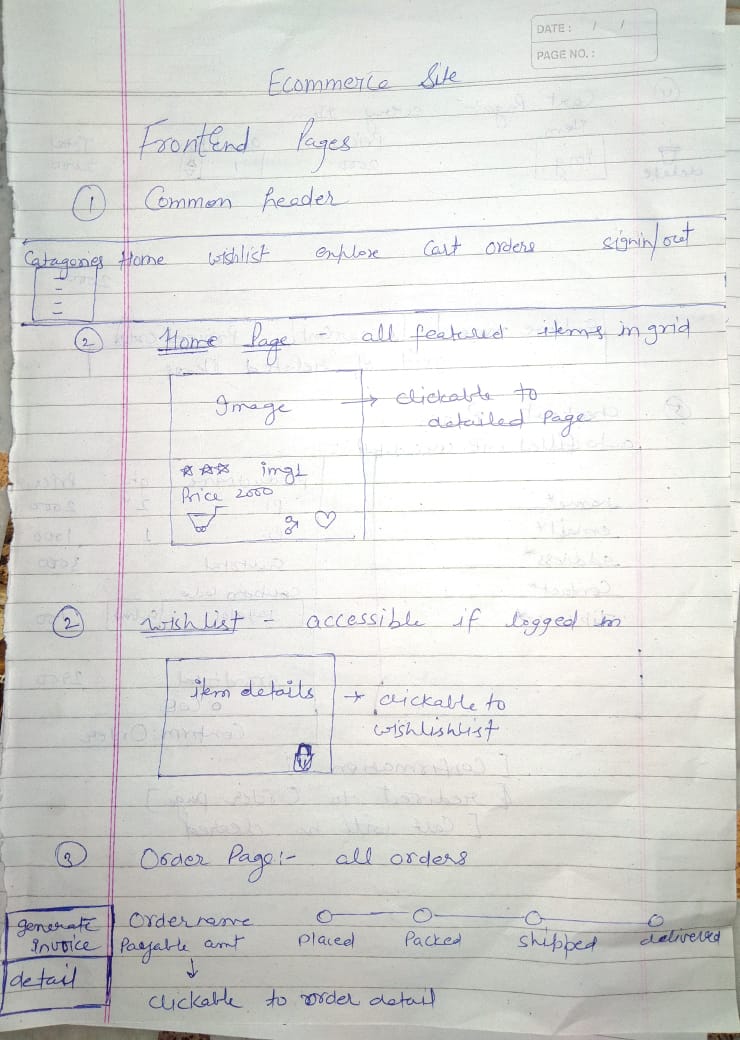 DATE: / /
PAGE NO.:
Ecommerce Site
Frontend Pages
1 Common header
Catagories Home wishlist explore Cart orders signin/out
2 Home Page - all featured items in grid
Image → clickable to
detailed Page
☆☆☆ img1
Price 2000
2 wishlist - accessible if logged in
item details → clickable to
wishlishlist
3 Order Page:- all orders
generate Invoice
detail
Order name
Payable amt
Placed Packed shipped delivered
↓
clickable to order detail